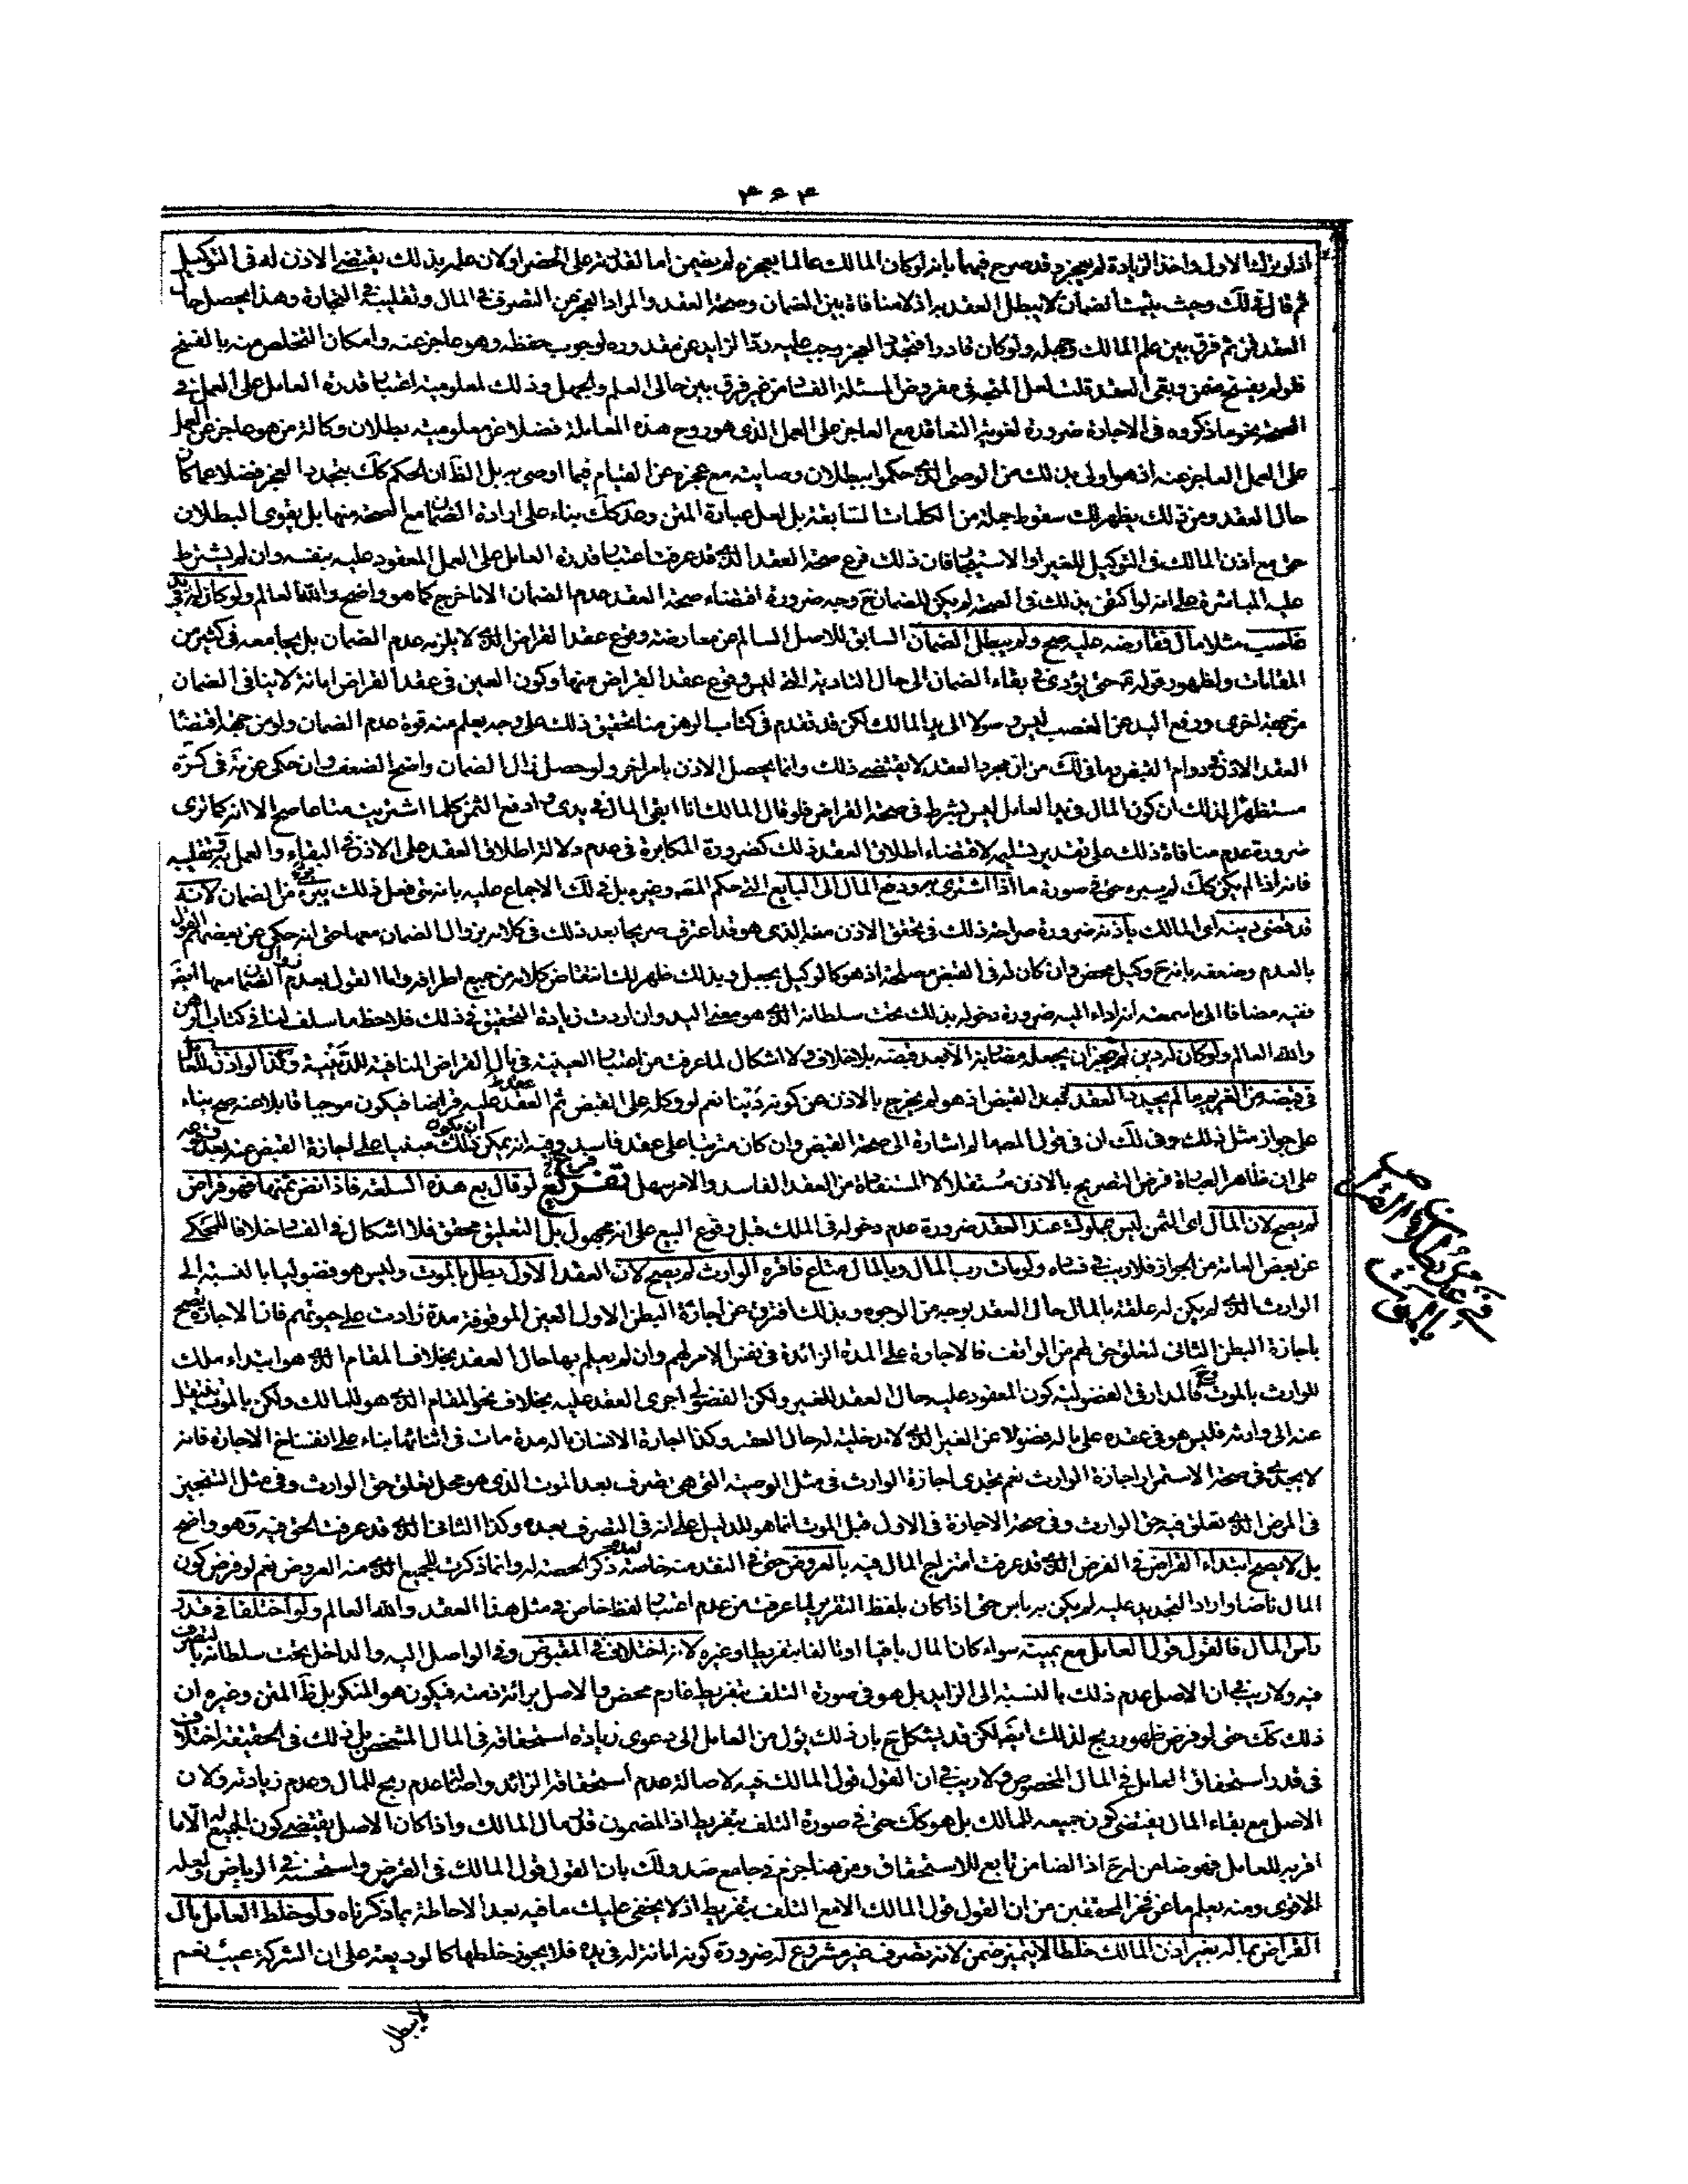 ٣٦٣
ثم قال في لك وحيث يثبت الضمان لا يبطل العقد به اذ لا منافاة بين الضمان وصحة العقد والمراد العجز عن التصرف في المال وتقليبه في التجارة وهذا يحصل حال
العقد فمن ثم فرق بين علم المالك وجهله ولو كان قادرا فتجدد العجز وجب عليه رد الزايد عن مقدوره لوجوب حفظه وهو عاجز عنه وامكان التخلص منه بالفسخ
فلو لم يفسخ ضمن وبقي العقد قلت لعل المتجه في مفروض المسئلة الفساد من غير فرق بين حالي العلم والجهل وذلك لمعلومية اعتبار قدرة العامل على العمل في
الصحة نحو ما ذكروه في الاجارة ضرورة لغوية التعاقد مع العاجز على العمل الذي هو روح هذه المعاملة فضلا عن معلومية بطلان وكالة من هو عاجز عن العمل
على العمل العاجز عنه اذ هو اولى بذلك من الوصي الذي حكموا ببطلان وصايته مع عجزه عن القيام فيما اوصى به بل الظ ان الحكم كك بتجدد العجز فضلا عما كان
حال العقد ومن ذلك يظهر لك سقوط جملة من الكلمات السابقة بل لعل عبارة المتن وحد كك بناء على ارادة الضمان مع الصحة منها بل يقوى البطلان
حتى مع اذن المالك في التوكيل للغير او الاستيجار فان ذلك فرع صحة العقد الذي قد عرفت اعتبار قدرة العامل على العمل المعقود عليه بنفسه وان لم يشترط
عليه المباشرة على انه لو اكتفى بذلك في الصحة لم يكن للضمان ح وجه ضرورة اقتضاء صحة العقد عدم الضمان الا ما خرج كما هو واضح والله العالم ولو كان له في يد
غاصب مثلا مال فقارضه عليه صح ولم يبطل الضمان السابق للاصل السالم عن معارضة وقوع عقد القراض الذي لا يلزمه عدم الضمان بل يجامعه في كثير من
المقامات ولظهور قوله ص حتى يؤدي في بقاء الضمان الى حال التادية التي ليس وقوع عقد القراض منها وكون العين في عقد القراض امانة لا ينافي الضمان
من جهة اخرى ورفع اليد عن الغصب ليس وصولا الى يد المالك لكن قد تقدم في كتاب الرهن منا تحقيق ذلك على وجه يعلم منه قوة عدم الضمان ولو من جهة اقتضاء
العقد الاذن في دوام القبض وما في لك من ان مجرد العقد لا يقتضي ذلك وانما يحصل الاذن بامر اخر ولو حصل زال الضمان واضح الضعف وان حكى عن
مستظهرا لذلك ان كون المال في يد العامل ليس بشرط في صحة القراض فلو قال المالك انا ابقي المال في يدي وادفع الثمن كلما اشتريت متاعا صح الا انه كما ترى
ضرورة عدم منافاة ذلك على تقدير تسليمه لاقتضاء اطلاق العقد ذلك كضرورة المكابرة في عدم دلالة اطلاق العقد على الاذن في البقاء والعمل به وتقليبه
فانه اذا لم يكن كك حتى في صورة ما اذا اشترى به ودفع المال الى البايع التي حكم المصه وغيره بل في لك الاجماع عليه بانه متى فعل ذلك برئ من الضمان لانه
قد قضى دينه اي المالك باذنه ضرورة صراحة ذلك في تحقق الاذن معه الذي هو قد اعترف صريحا بعد ذلك في كلامه بزوال الضمان معها حتى انه حكى عن بعضهم القول
بالعدم وضعفه بانه ح وكيل محض وان كان له في القبض مصلحة اذ هو كالوكيل بجعل وبذلك ظهر لك انتقاض كلامه من جميع اطرافه واما القول بعدم زوال الضمان معها ايضا
ففيه مضافا الى ما سمعته انه اداء اليه ضرورة دخوله بذلك تحت سلطانه الذي هو معنى اليد وان اردت زيادة التحقيق في ذلك فلاحظ ما سلف لنا في كتاب الرهن
والله العالم ولو كان له دين لم يجز ان يجعل مضاربة الا بعد قبضه بلا خلاف ولا اشكال لما عرفت من اعتبار العينية في مال القراض المنافية للدينية وكذا لو اذن للعامل
في قبضه من الغريم ما لم يجدد العقد بعد القبض اذ هو لم يخرج بالاذن عن كونه دينا نعم لو وكله على القبض ثم العقد عليه قراضا فيكون موجبا قابلا عنه صح بناء
على جواز مثل ذلك وفي لك ان في قول المصه ما لم اشارة الى صحة القبض وان كان مترتبا على عقد فاسد وفيه انه يمكن ان يكون ذلك مبنيا على اجازة القبض عنه بعد وقوعه
على ان ظاهر العبارة فرض التصريح بالاذن مستقلا لا المستفادة من العقد الفاسد والامر سهل تفريع لو قال بع هذه السلعة فاذا نض ثمنها فهو قراض
لم يصح لان المال اي الثمن ليس بمملوك عند العقد ضرورة عدم دخوله في الملك قبل وقوع البيع على انه مجهول بل التعليق محقق فلا اشكال في الفساد خلافا للمحكي
عن بعض العامة من الجواز فلا ريب في فساده ولو مات رب المال وبالمال متاع فاقره الوارث لم يصح لان العقد الاول بطل بالموت وليس هو فضوليا بالنسبة الى
الوارث الذي لم يكن له علقة بالمال حال العقد بوجه من الوجوه وبذلك افترق عن اجازة البطن الاول العين الموقوفة مدة زادت على حيوتهم فان الاجارة تصح
باجازة البطن الثاني لتعلق حق لهم من الواقف فالاجارة على المدة الزائدة في نفس الامر لهم وان لم يعلم بها حال العقد بخلاف المقام الذي هو ابتداء ملك
للوارث بالموت فالمدار في الفضولية كون المعقود عليه حال العقد للغير ولكن الفضولي اجرى العقد عليه بخلاف نحو المقام الذي هو للمالك ولكن بالموت ينتقل
عنه الى وارثه فليس هو في عقده على ماله فضولا عن الغير الذي لا مدخلية له حال العقد وكذا اجارة الانسان ماله مدة مات في اثنائها بناء على انفساخ الاجارة فانه
لا يجدي في صحة الاستمرار اجازة الوارث نعم تجدي اجازة الوارث في مثل الوصية التي هي تصرف بعد الموت الذي هو محل تعلق حق الوارث وفي مثل التنجيز
في المرض الذي تعلق فيه حق الوارث وفي صحة الاجازة في الاول قبل الموت انما هو للدليل على انه في التصرف بعده وكذا الثاني الذي قد عرفت الحق فيه وهو واضح
بل لا يصح ابتداء القراض في الفرض الذي قد عرفت امتزاج المال فيه بالعروض حتى في النقد منه خاصة لعدم ذكر الحصة له وانما ذكرت للجميع الذي منه العروض نعم لو فرض كون
المال ناضا واراد التجديد عليه لم يكن به باس حتى اذا كان بلفظ التقرير لما عرفت من عدم اعتبار لفظ خاص في مثل هذا العقد والله العالم ولو اختلفا في قدر
راس المال فالقول قول العامل مع يمينه سواء كان المال باقيا او تالفا بتفريط او غيره لانه اختلاف في المقبوض وفي الواصل اليه والداخل تحت سلطانه
فيه ولا ريب في ان الاصل عدم ذلك بالنسبة الى الزايد بل هو في صورة التلف بتفريط غارم محض والاصل برائة ذمته فيكون هو المنكر بل ظ المتن وغيره ان
ذلك كك حتى لو فرض ظهور ربح لذلك ايضا لكن قد يشكل ح بان ذلك يؤل من العامل الى دعوى زيادة استحقاقه في المال المشخص بل ذلك في الحقيقة اختلاف
في قدر استحقاق العامل في المال المخصوص ولا ريب في ان القول قول المالك فيه لاصالة عدم استحقاقه الزائد واصالة عدم ربح للمال وعدم زيادته ولان
الاصل مع بقاء المال يقتضي كون جميعه للمالك بل هو كك حتى في صورة التلف بتفريط اذ المضمون قدر مال المالك واذا كان الاصل يقتضي كون الجميع له الا ما
اقر به للعامل فهو ضامن له ح اذ الضامن تابع للاستحقاق ومن هنا جزم في جامع صد ولك بان القول قول المالك في الفرض واستحسنه في الرياض ولعله
الاقوى ومنه يعلم ما عن فخر المحققين من ان القول قول المالك الا مع التلف بتفريط اذ لا يخفى عليك ما فيه بعد الاحاطة بما ذكرناه ولو خلط العامل مال
القراض بماله بغير اذن المالك خلطا لا يتميز ضمن لانه تصرف غير مشروع له ضرورة كونه امانة له في يده فلا يجوز خلطها كالوديعة على ان الشركة عيب نعم
لا يبطل